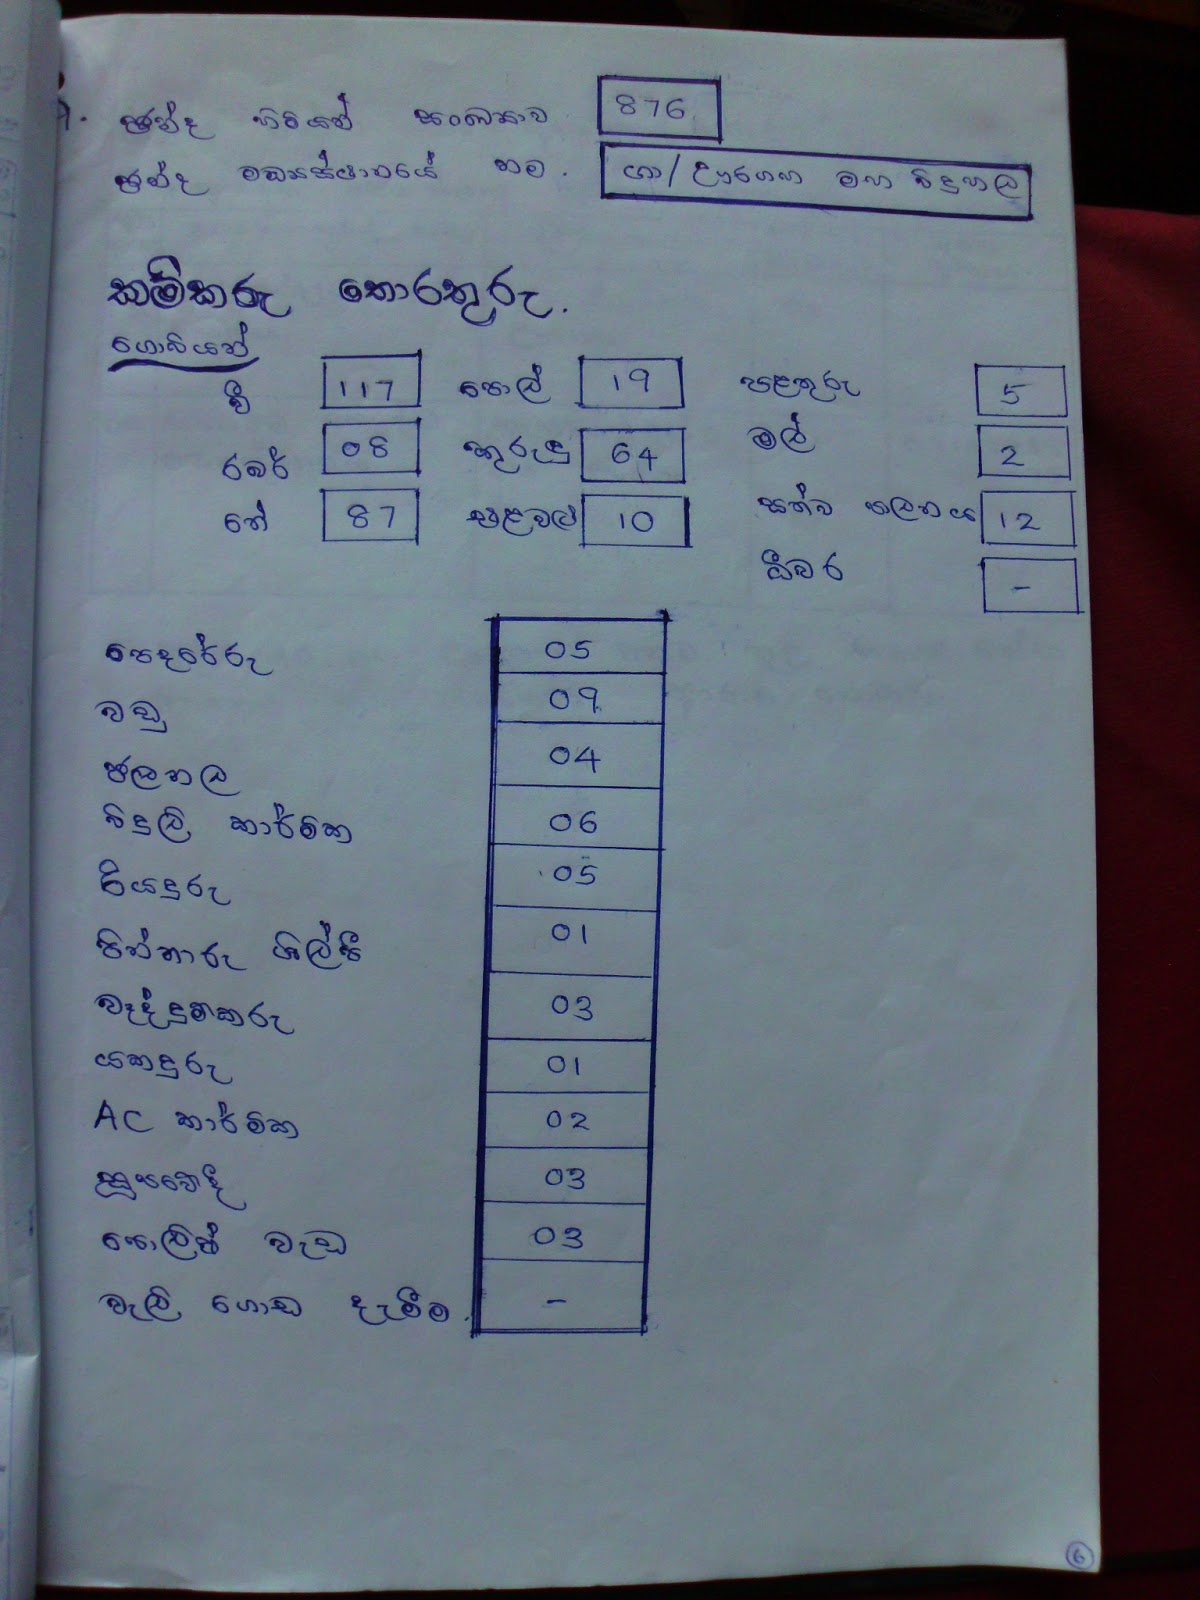 9. ඡන්ද හිමියන් සංඛ්‍යාව 876
ඡන්ද මධ්‍යස්ථානයේ නම. ගා/ ඌරගහ මහ විදුහල
කම්කරු තොරතුරු.
ගොවියන්
වී 117 පොල් 19 පළතුරු 5
රබර් 08 කුරුඳු 64 මල් 2
තේ 87 එළවළු 10 සත්ව පාලනය 12
ධීවර -
පෙදරේරු 05
වඩු 09
ජලනල 04
විදුලි කාර්මික 06
රියදුරු 05
පින්තාරු ශිල්පී 01
වෑද්දුම්කරු 03
යකදුරු 01
AC කාර්මික 02
සූපවේදී 03
පොලිෂ් වැඩ 03
වැලි ගොඩ දැමීම. -
6